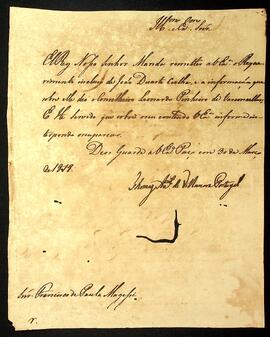 Illmo. e Exmo. Snr.
El Rey Nosso Senhor Manda remetter a V. Exa. o Reque-
rimento incluso de João Duarte Coelho, e a informação, que
sobre elle deo o Conselheiro Leonardo Pinheiro de Vasconcellos,
E He Servido que sobre seu contheudo V. Exa. informe in-
terpondo o seu parecer.
Deos Guarde a V. Exa. Paço em 30 de Março
de 1819.
Thomaz Anto. de Villanova Portugal
Snr. Francisco de Paula Magessi